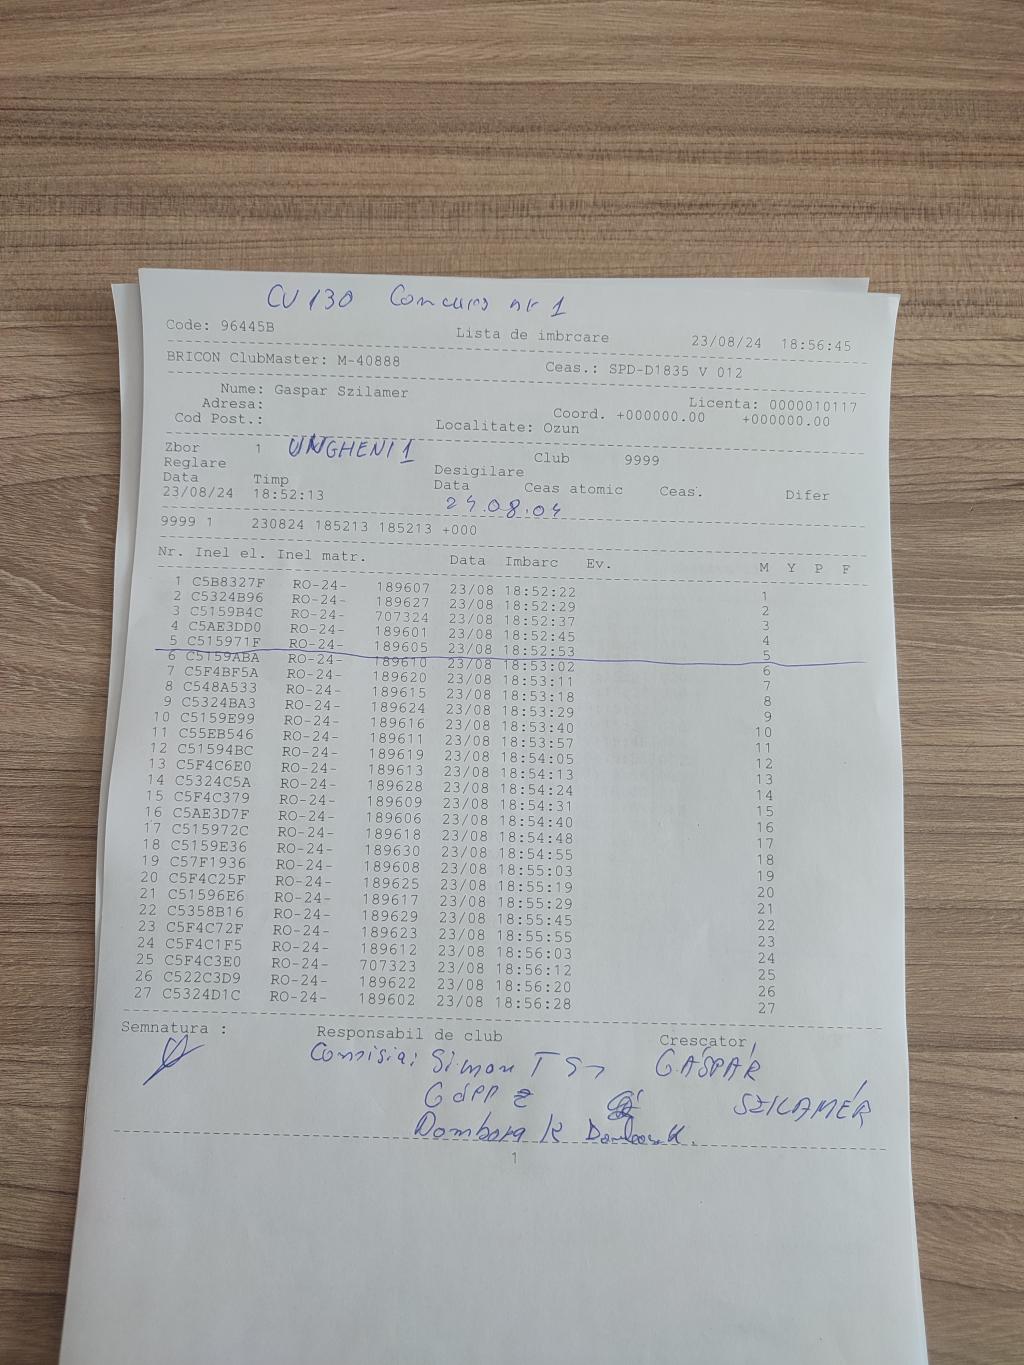 CU 130 Concurs nr 1
Code: 96445B Lista de imbrcare 23/08/24 18:56:45
BRICON ClubMaster: M-40888 Ceas.: SPD-D1835 V 012
Nume: Gaspar Szilamer Licenta: 0000010117
Adresa: Coord. +000000.00 +000000.00
Cod Post.: Localitate: Ozun
Zbor 1 UNGHENI 1 Club 9999
Reglare Desigilare
Data Timp Data Ceas atomic Ceas. Difer
23/08/24 18:52:13 24.08.04
9999 1 230824 185213 185213 +000
Nr. Inel el. Inel matr. Data Imbarc Ev. M Y P F
1 C5B8327F RO-24- 189607 23/08 18:52:22 1
2 C5324B96 RO-24- 189627 23/08 18:52:29 2
3 C5159B4C RO-24- 707324 23/08 18:52:37 3
4 C5AE3DD0 RO-24- 189601 23/08 18:52:45 4
5 C515971F RO-24- 189605 23/08 18:52:53 5
6 C5159ABA RO-24- 189610 23/08 18:53:02 6
7 C5F4BF5A RO-24- 189620 23/08 18:53:11 7
8 C548A533 RO-24- 189615 23/08 18:53:18 8
9 C5324BA3 RO-24- 189624 23/08 18:53:29 9
10 C5159E99 RO-24- 189616 23/08 18:53:40 10
11 C55EB546 RO-24- 189611 23/08 18:53:57 11
12 C51594BC RO-24- 189619 23/08 18:54:05 12
13 C5F4C6E0 RO-24- 189613 23/08 18:54:13 13
14 C5324C5A RO-24- 189628 23/08 18:54:24 14
15 C5F4C379 RO-24- 189609 23/08 18:54:31 15
16 C5AE3D7F RO-24- 189606 23/08 18:54:40 16
17 C515972C RO-24- 189618 23/08 18:54:48 17
18 C5159E36 RO-24- 189630 23/08 18:54:55 18
19 C57F1936 RO-24- 189608 23/08 18:55:03 19
20 C5F4C25F RO-24- 189625 23/08 18:55:19 20
21 C51596E6 RO-24- 189617 23/08 18:55:29 21
22 C5358B16 RO-24- 189629 23/08 18:55:45 22
23 C5F4C72F RO-24- 189623 23/08 18:55:55 23
24 C5F4C1F5 RO-24- 189612 23/08 18:56:03 24
25 C5F4C3E0 RO-24- 707323 23/08 18:56:12 25
26 C522C3D9 RO-24- 189622 23/08 18:56:20 26
27 C5324D1C RO-24- 189602 23/08 18:56:28 27
Semnatura : Responsabil de club Crescator
Comisia: Simon T GÁSPÁR
SZILAMÉR
Dombora K
1